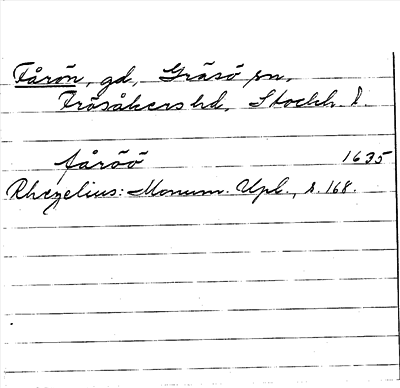 Fårön, gd, Gräsö sn,
Frösåkers hd, Stockh. l.
fåröö 1635
Rhezelius: Monum. Upl., s. 168.